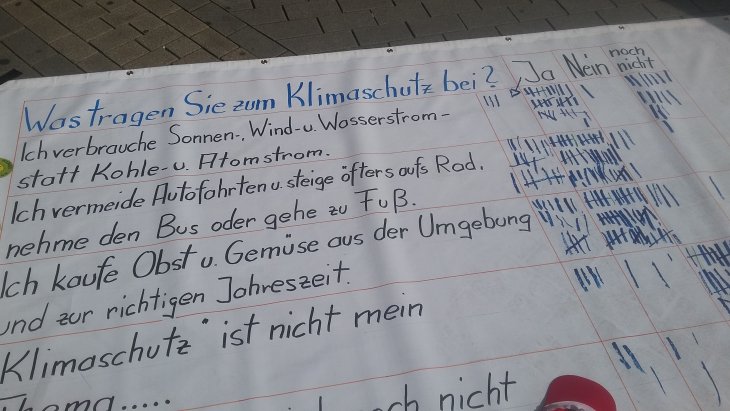 Was tragen Sie zum Klimaschutz bei?
Ja Nein noch nicht
Ich verbrauche Sonnen-, Wind- u. Wasserstrom -
statt Kohle- u. Atomstrom.
Ich vermeide Autofahrten u. steige öfters aufs Rad,
nehme den Bus oder gehe zu Fuß.
Ich kaufe Obst u. Gemüse aus der Umgebung
und zur richtigen Jahreszeit.
Klimaschutz ist nicht mein
Thema.....
noch nicht